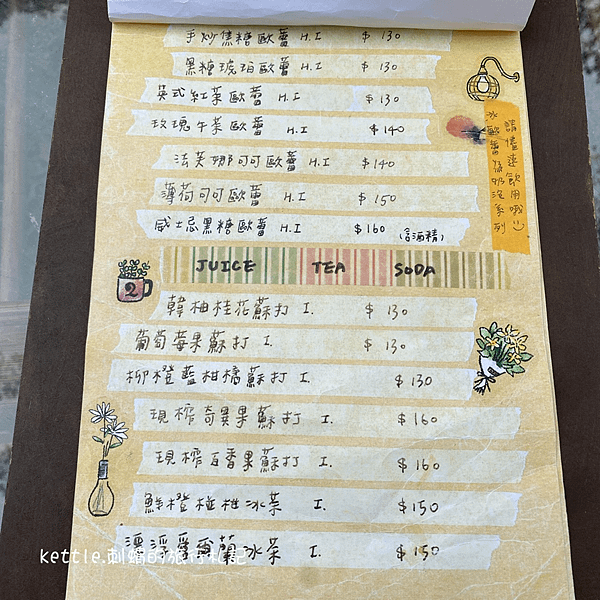 手炒焦糖歐蕾 H.I $130
黑糖琥珀歐蕾 H.I $130
英式紅茶歐蕾 H.I $130
玫瑰午茶歐蕾 H.I $140
法芙娜可可歐蕾 H.I $140
薄荷可可歐蕾 H.I $150
威士忌黑糖歐蕾 H.I $160 (含酒精)
請儘速飲用哦
冰歐蕾為奶泡系列
2
JUICE TEA SODA
韓柚桂花蘇打 I. $130
葡萄莓果蘇打 I. $130
柳橙藍柑橘蘇打 I. $130
現榨奇異果蘇打 I. $160
現榨百香果蘇打 I. $160
鮮橙 冰茶 I. $150
漂浮愛爾蘭冰茶 I. $150
kettle.刺蝟的旅行札記